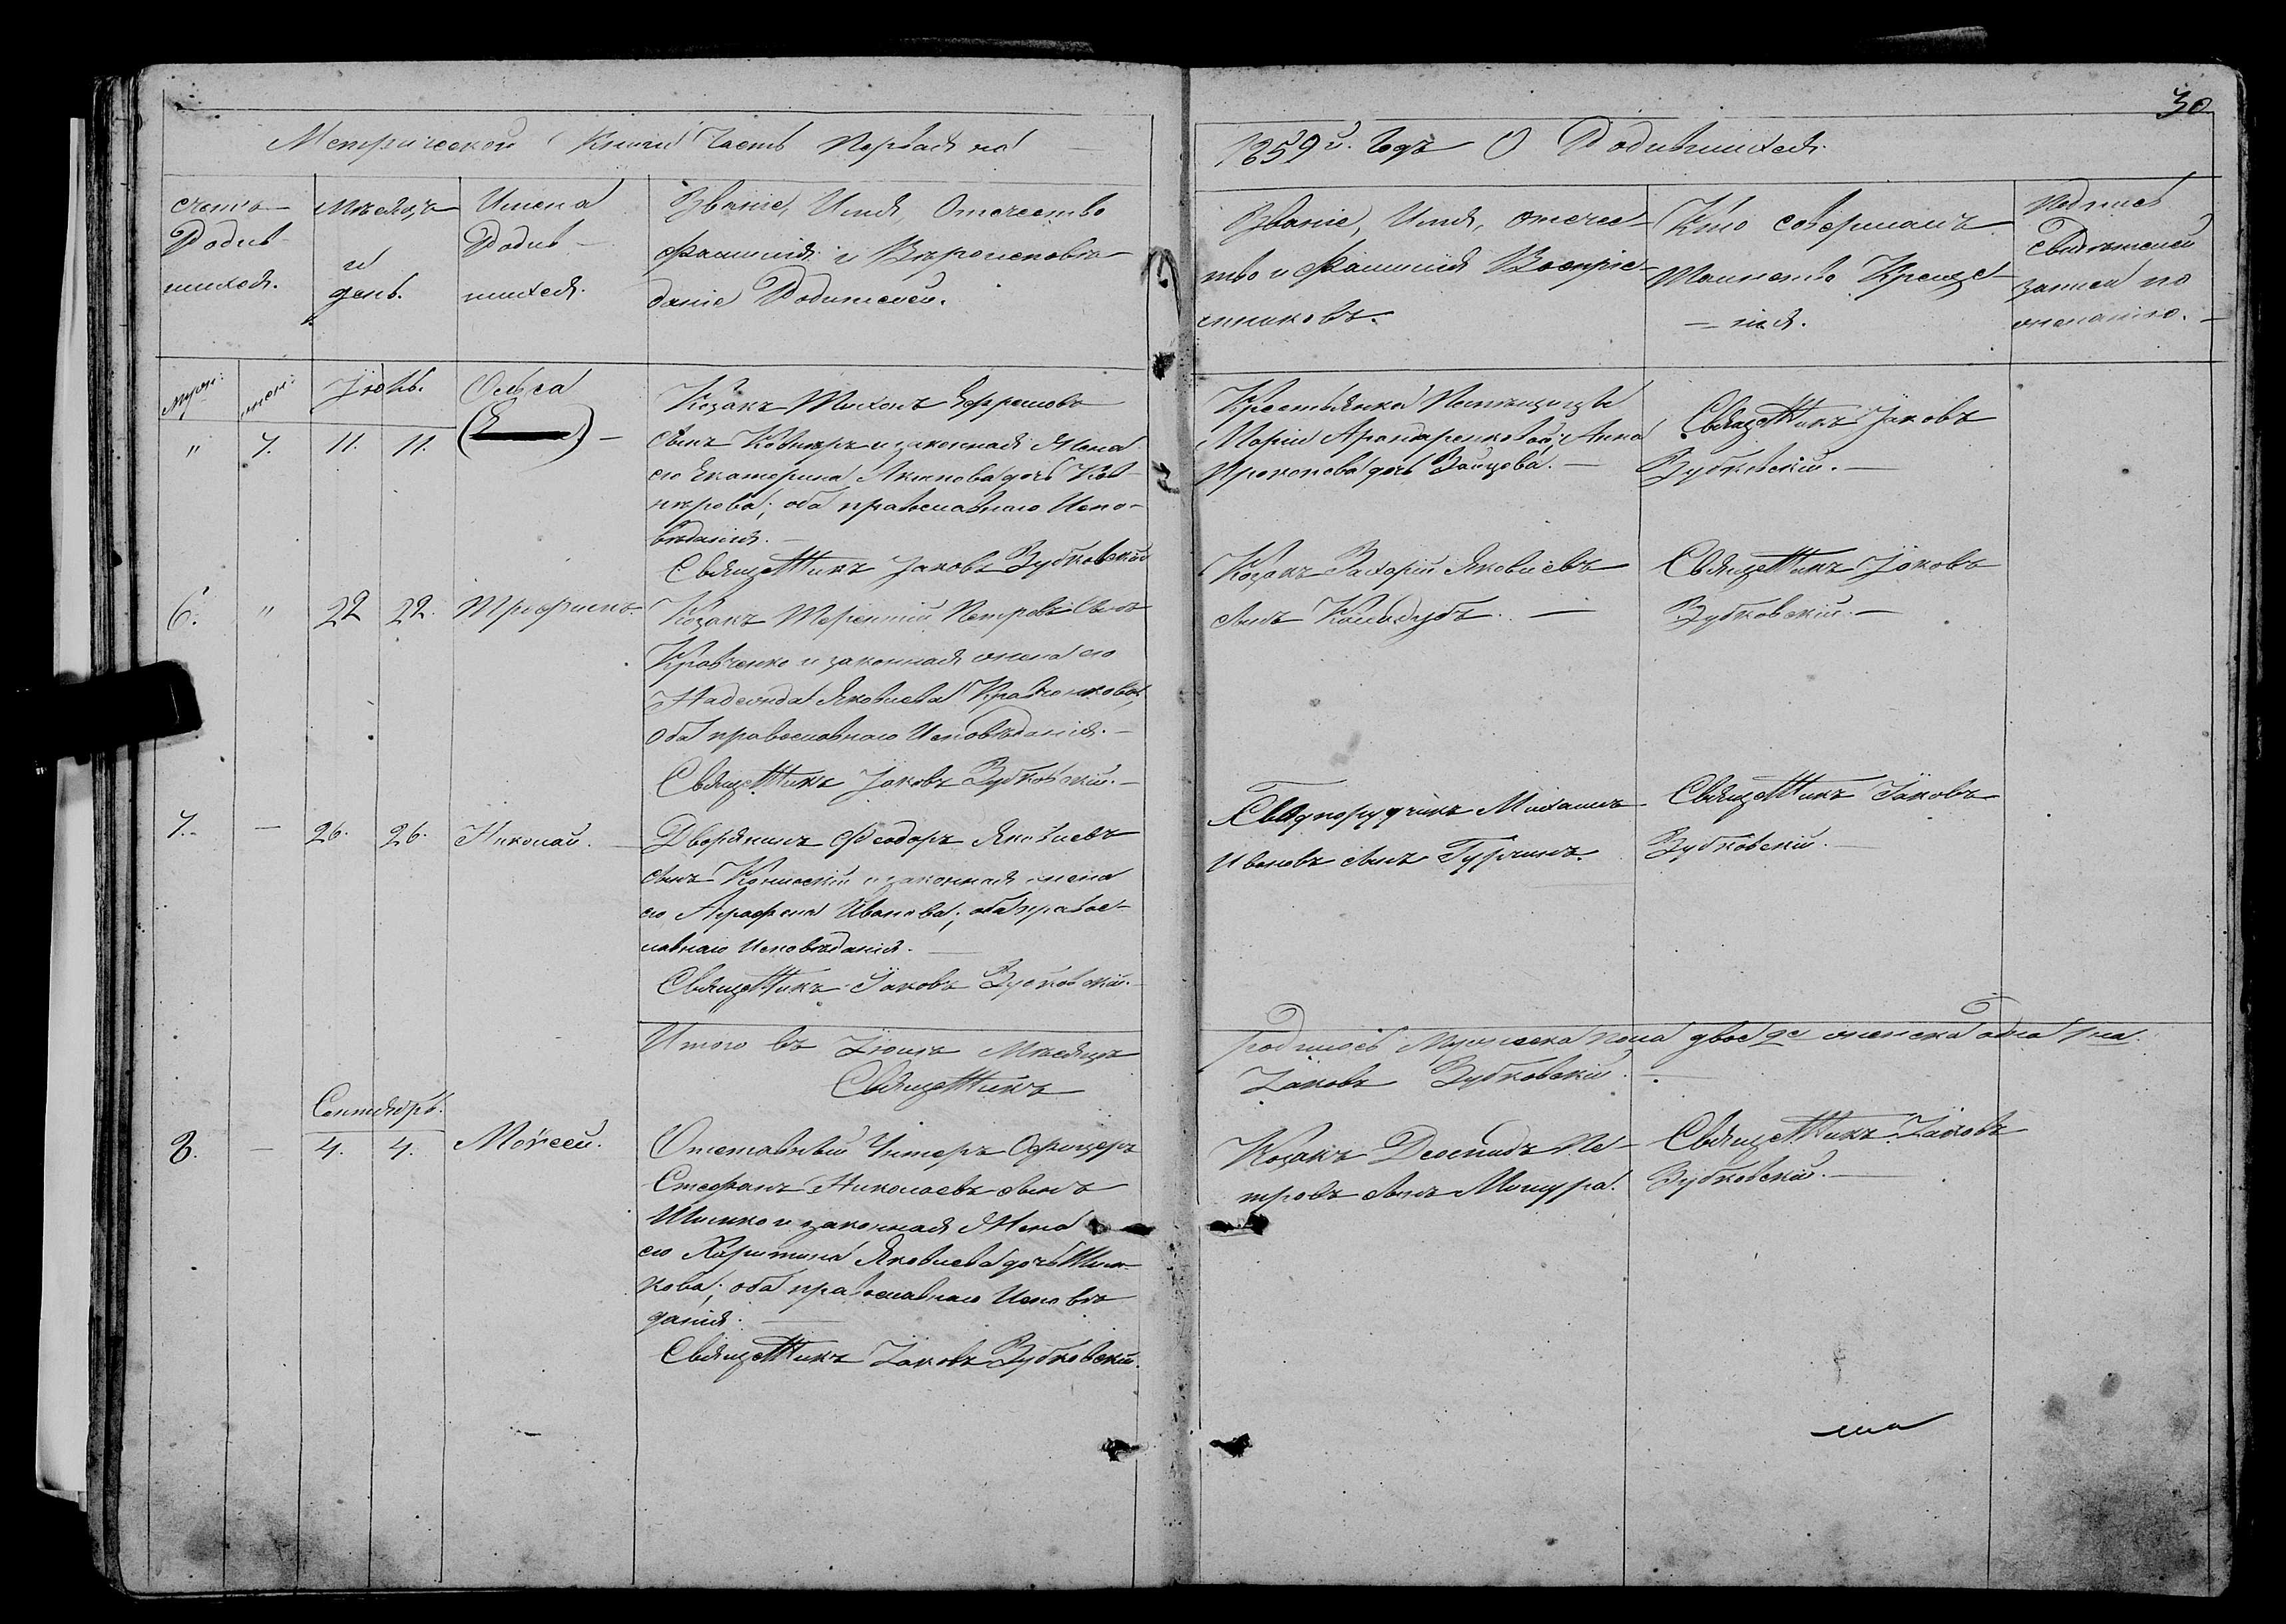 30
Метрической Книги Часть Первая на
1859й. Годъ О Родившихся.
счетъ Родив-шихся.
Мѣсяцъ и день.
Имена Родив-шихся.
Званіе, Имя, Отечество
Фамилія и Вѣроисповѣ-
даніе Родителей.
Званіе, Имя, отечес-
тво и Фамилія Воспріе-
мниковъ.
Кто совершалъ
Таинство Креще-
нія.
Подпись
Свидѣтелей
записи по
желанію.
муж: жен: Іюль.
" 7. 11. 11. Ольга
Козакъ Тихонъ Ефремовъ
сынъ Ковнѣръ и законная Жена
его Екатерина Акимова дочь Ков-
нѣрова; оба православнаго Испо-
вѣданія.
Священникъ Іаковъ Зубковскій
Крестьянка Помѣщицы
Маріи Арандаренковой; Анна
Прокопова дочь Зайцова.
Священникъ Іаковъ
Зубковскій.
6. " 22 22. Трофимъ.
Козакъ Терентій Петровъ Сынъ
Кравченко и законная жена его
Надежда Яковлева Кравченкова,
оба православнаго Исповѣданія.
Священникъ Іаковъ Зубковскій.
Козакъ Захарій Яковлевъ
сынъ
Священникъ Іаковъ
Зубковскій.
7. — 26. 26. Николай.
Дворянинъ Феодоръ Яковлевъ
сынъ и законная жена
его Агрофена Иванова; оба правос-
лавнаго Исповѣданія.
Священникъ Іаковъ Зубковскій.
Михаилъ
Ивановъ сынъ Гурчинъ.
Священникъ Іаковъ
Зубковскій.
Итого въ Іюлѣ Мѣсяцѣ
Родилось Мужеска пола двое 2е женска одна 1на.
Священникъ
Іаковъ Зубковскій.
Сентябрь.
8. — 4. 4. Моѵсей.
Отставный Унтеръ Офицеръ
Стефанъ Николаевъ сынъ
Шишко и законная Жена
его Харитина Яковлева дочь Шиш-
кова; оба православнаго Исповѣ
данія.
Священникъ Іаковъ Зубковскій.
Козакъ Леонидъ Пе-
тровъ сынъ Мишура.
Священникъ Іаковъ
Зубковскій.